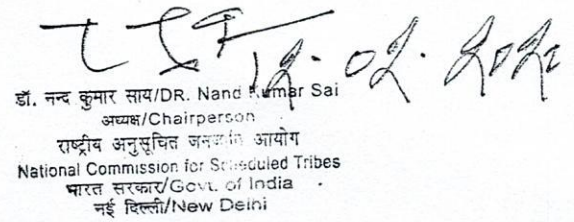 12.02.202
डॉ. नन्द कुमार साय/DR. Nand Kumar Sai
अध्यक्ष/Chairperson
राष्ट्रीय अनुसूचित जनजाति आयोग
National Commission for Scheduled Tribes
भारत सरकार/Govt. of India
नई दिल्ली/New Delhi